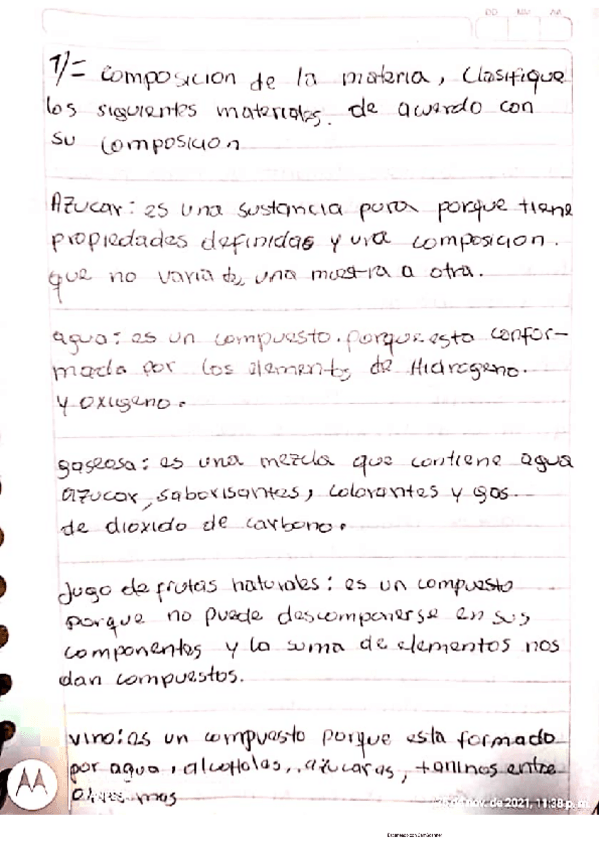 DD MM AA
1/= composicion de la materia, clasifique
los siguientes materiales. de acuerdo con
su composicion
Azucar: es una sustancia pura porque tiene
propiedades definidas y una composicion.
que no varia de una muestra a otra.
agua: es un compuesto. porque esta confor-
mada por los elementos de Hidrogeno.
y oxigeno.
gaseosa: es una mezcla que contiene agua
azucar, saborisantes, colorantes y gas
de dioxido de carbono.
Jugo de frutas naturales: es un compuesto
porque no puede descomponerse en sus
componentes y la suma de elementos nos
dan compuestos.
vino: es un compuesto porque esta formado
por agua, alcoholes, azucares, taninos entre
otros mas
nov. de 2021, 11:38 p. m.
Escaneado con CamScanner